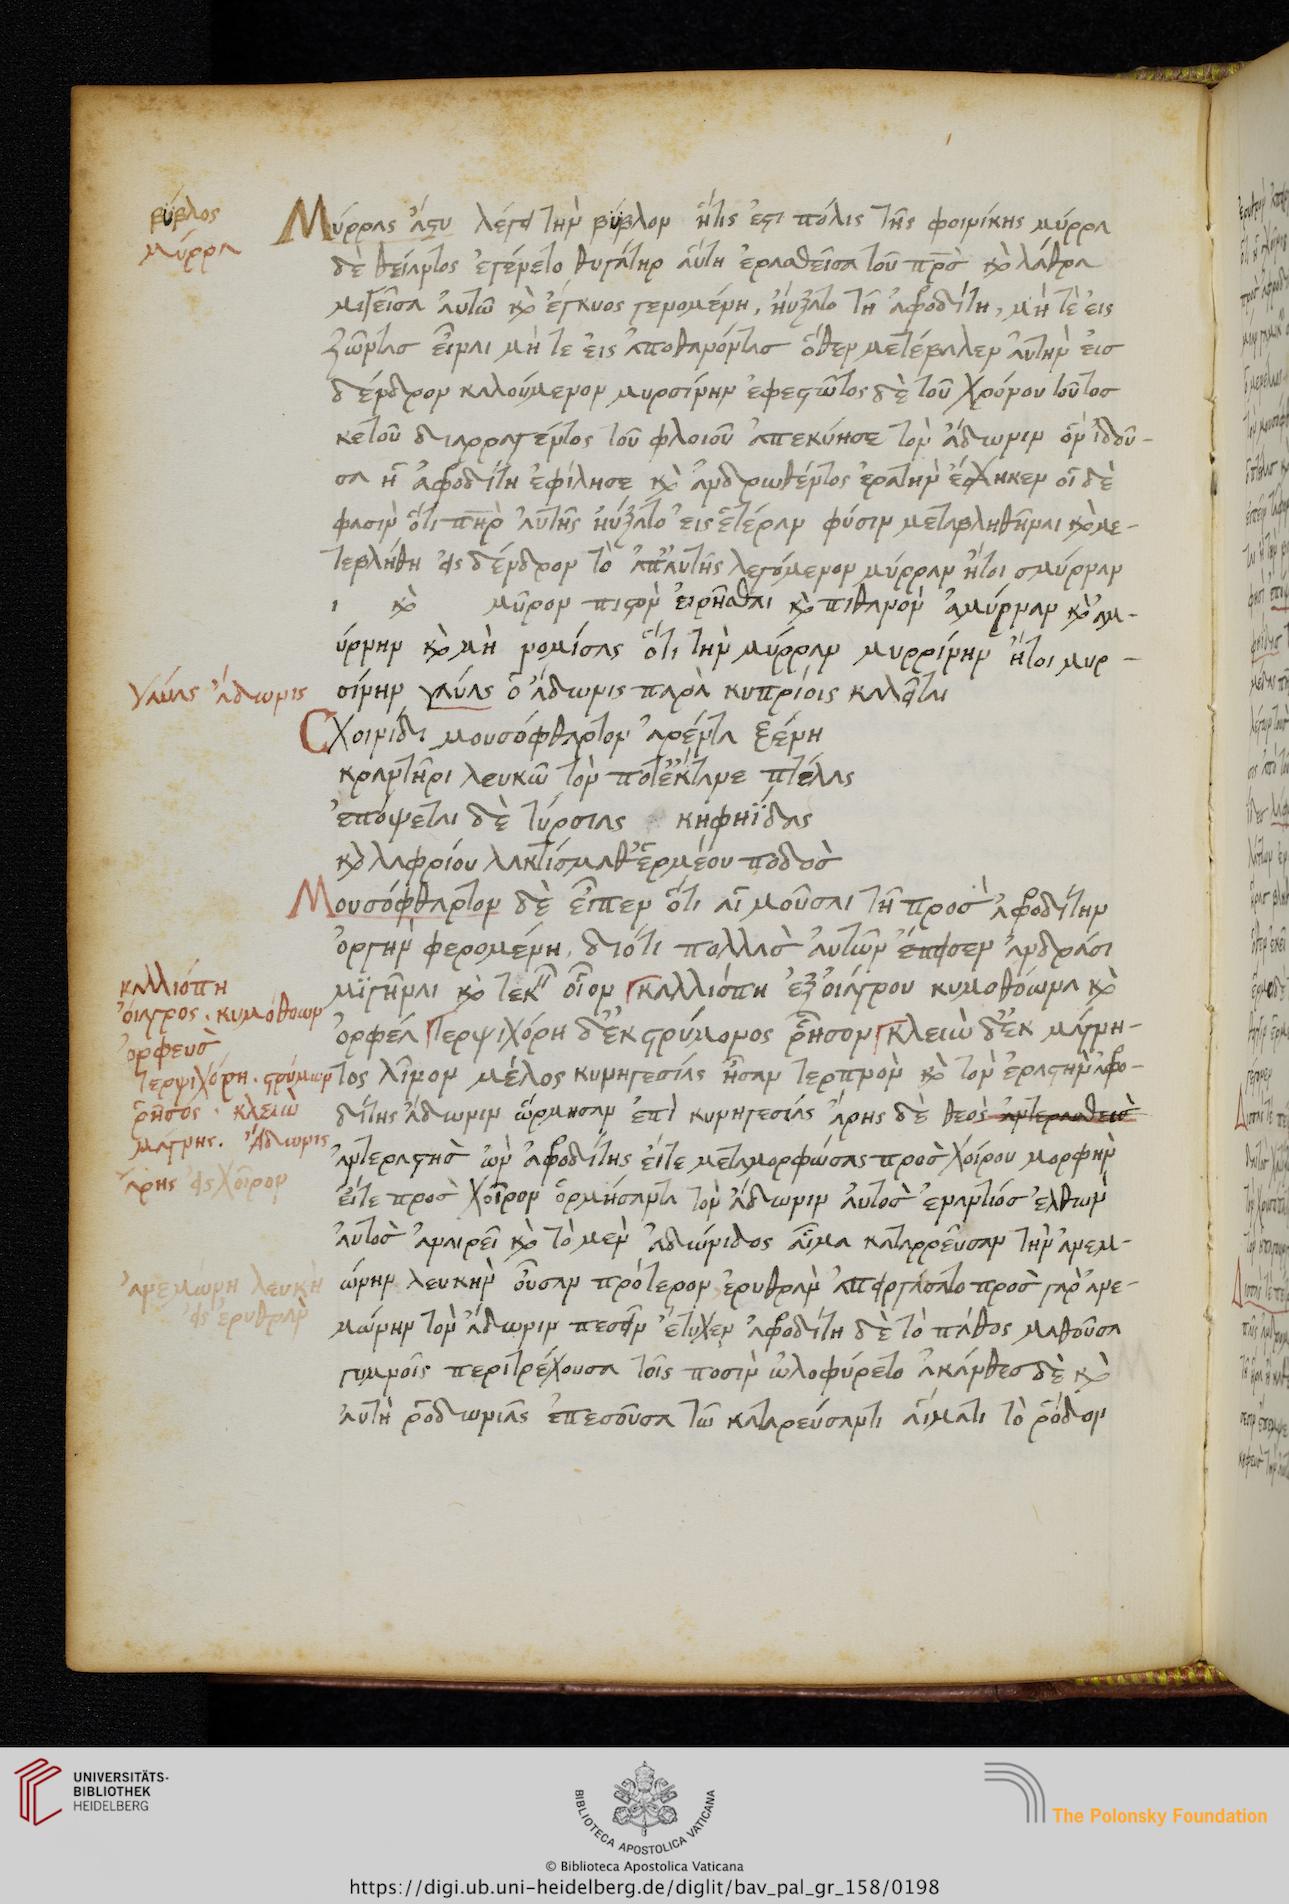 βύβλος
μύρρα
Μύρρας ἄστυ λέγει τὴν βύβλον ἥτις ἐστι πόλις τῆς φοινίκης μύρρα
δὲ θείαντος ἐγένετο θυγάτηρ αὕτη ἐρασθεῖσα τοῦ πρσ καὶ λάθρα
μιγεῖσα αὐτῶ καὶ ἔγκυος γενομένη, ἠύξατο τῆ ἀφροδίτη, μήτε εἰς
ζῶντας εἶναι μήτε εἰς ἀποθανόντας ὅθεν μετέβαλεν αὐτὴν εἰσ
δένδρον καλούμενον μυρσίνην ἐφεστῶτος δὲ τοῦ χρόνου τοῦ τοσ
κετοῦ διαρραγέντος τοῦ φλοιοῦ ἀπεκύησε τὸν ἄδωνιν ὃν ἰδοῦ-
σα ἡ ἀφροδίτη ἐφίλησε καὶ ἀνδρωθέντος ἐραστὴν ἔσχηκεν οἱ δὲ
φασὶν ὅτι πηρ αὐτῆς ηὔξατο εἰς ἑτέραν φύσιν μεταβληθῆναι καὶ με-
τεβλήθη εἰς δένδρον τὸ ἀπ' αὐτῆς λεγόμενον μύρραν ἤτοι σμύρναν
ι καὶ μῦρον πιστὸν εἰρῆσθαι καὶ πιθανὸν ἀμύρναν καὶ ἀμ-
ύρνην καὶ μὴ νομίσας ὅτι τὴν μύρραν μυρρίνην ἤτοι μυρ-
Γαύας ἄδωνις
σίνην γαύας ὁ ἄδωνις παρὰ κυπρίοις καλεῖται
Σχοινίδι μουσόφθαρτον αὐαίνει ξένη
κραντῆρι λευκῶ τόν ποτ' ἔκτανε πτέλας
ἐπόψεται δὲ τύρσιας κηφηΐδας
καὶ λαφρίου λακτίσμαθ' ἑρμέου ποδὸσ
Μουσόφθαρτον δὲ εἶπεν ὅτι αἱ μοῦσαι τῆ προσ ἀφροδίτην
ὀργὴν φερομένη, διότι πολλὰσ αὐτῶν ἔπεισεν ἀνδράσι
καλλιόπη
οἴαγρος. κυμόθοων
ὀρφευσ
τερψιχόρη. στρύμων
ῥῆσος. κλειὼ
μάγνης. Ἄδωνις
Ἄρης εἰς χοῖρον
μιγῆναι καὶ τεκεῖν οἷον καλλιόπη ἐξ οἰάγρου κυμοθόωνα καὶ
ὀρφέα τερψιχόρη δ' ἐκ στρύμονος ῥῆσον κλειὼ δ' ἐκ μάγνη-
τος λῖνον μέλος κυνηγεσίας ἦσαν τερπνὸν καὶ τὸν ἐραστὴν ἀφρο-
δίτης ἄδωνιν ὥρμησαν ἐπὶ κυνηγεσίας ἄρης δὲ θεὸς ἀντερασθεὶσ
ἀντεραστὴσ ὢν ἀφροδίτης εἴτε μεταμορφώσας προσ χοίρου μορφὴν
εἴτε προσ χοῖρον ὁρμήσαντα τὸν ἄδωνιν αὐτὸσ ἐναντίος ἐλθὼν
αὐτὸσ ἀναιρεῖ καὶ τὸ μὲν ἀδώνιδος αἷμα καταρρεῦσαν τὴν ἀνεμ-
ἀνεμώνη λευκὴ
εἰς ἐρυθρὰν
ώνην λευκὴν οὖσαν πρότερον ἐρυθρὰν ἀπειργάσατο προσ γὰρ ἀνε-
μώνην τὸν ἄδωνιν πεσεῖν ἔτυχεν ἀφροδίτη δὲ τὸ πάθος μαθοῦσα
γυμνοῖς περιτρέχουσα τοῖς ποσὶν ὠλοφύρετο ἀκάνθεσ δὲ καὶ
αὐτὴ ῥοδωνιᾶς ἐπεσοῦσα τῶ καταρεύσαντι αἵματι τὸ ῥόδον
UNIVERSITÄTS-
BIBLIOTHEK
HEIDELBERG
BIBLIOTHECA APOSTOLICA VATICANA
The Polonsky Foundation
© Biblioteca Apostolica Vaticana
https://digi.ub.uni-heidelberg.de/diglit/bav_pal_gr_158/0198